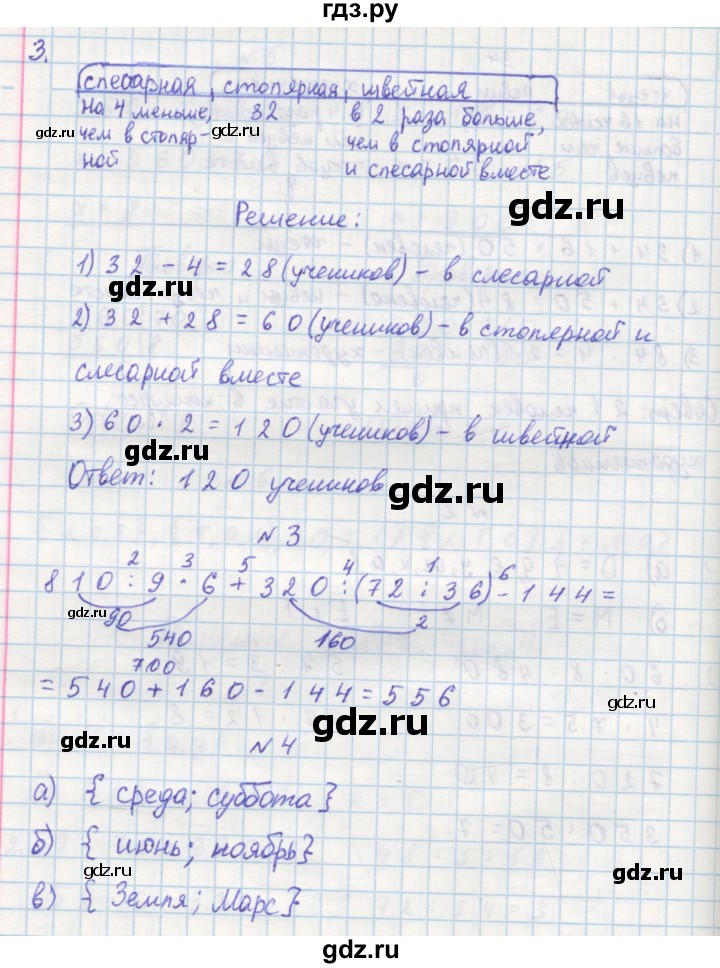 гдз.ру
3.
слесарная, столярная, швейная
на 4 меньше, 32 в 2 раза больше,
чем в столяр- чем в столярной
ной и слесарной вместе
Решение:
1) 32 - 4 = 28 (учеников) - в слесарной
2) 32 + 28 = 60 (учеников) - в столярной и
слесарной вместе
3) 60 · 2 = 120 (учеников) - в швейной
Ответ: 120 учеников
№ 3
2 3 5 4 1 6
810 : 9 · 6 + 320 : (72 : 36) - 144 =
90 2
540 160
700
= 540 + 160 - 144 = 556
№ 4
а) { среда; суббота }
б) { июнь; ноябрь }
в) { Земля; Марс }
gdz.ru
gdz.ru
gdz.ru
gdz.ru
gdz.ru
gdz.ru
gdz.ru
gdz.ru
gdz.ru
gdz.ru
gdz.ru
gdz.ru